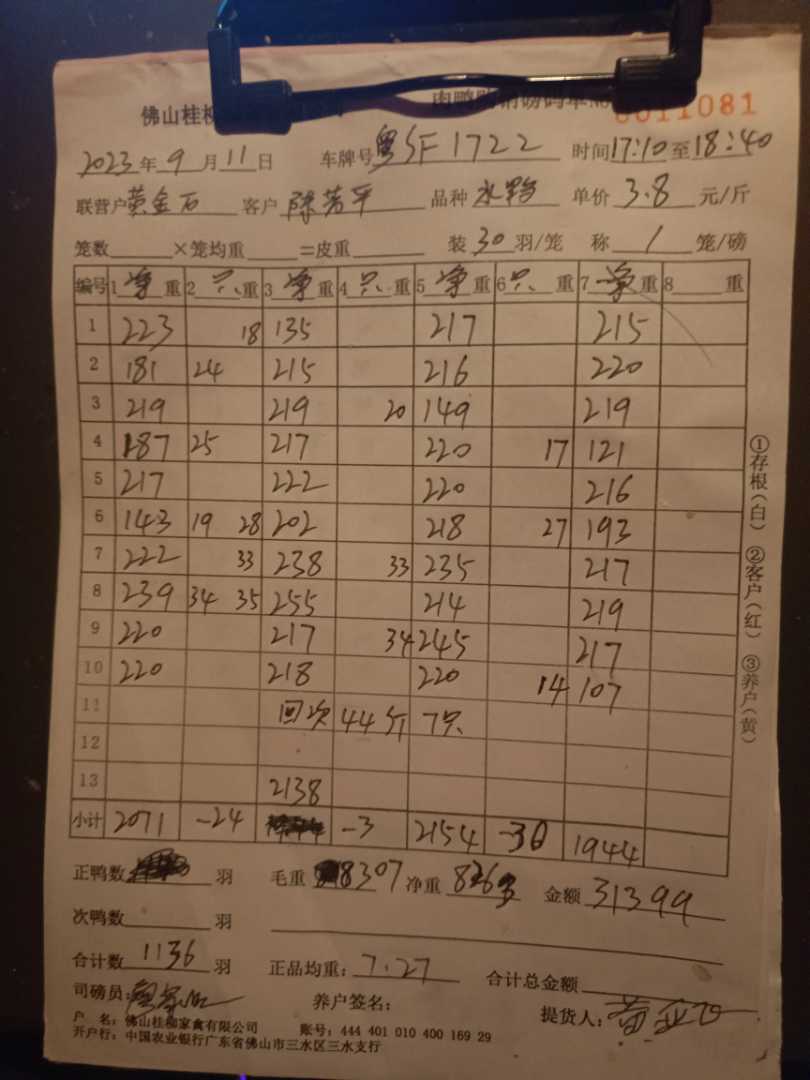 佛山桂柳
肉鸭购销磅码单No 0011081
2023年9月11日 车牌号粤SF1722 时间17:10至18:40
联营户黄金石 客户陈芳平 品种水鸭 单价3.8元/斤
笼数 ×笼均重 =皮重 装30羽/笼 称1笼/磅
编号 1净重 2只重 3净重 4只重 5净重 6只重 7净重 8 重
1 223 18 135 217 215
2 181 24 215 216 220
3 219 219 20 149 219
4 187 25 217 220 17 121
5 217 222 220 216
6 143 19 28 202 218 27 193
7 222 33 238 33 235 217
8 239 34 35 255 214 219
9 220 217 34 245 217
10 220 218 220 14 107
11 回次 44斤 7只
12
13 2138
小计 2071 -24 -3 2154 -30 1944
正鸭数 羽 毛重 8307 净重 8263 金额 31399
次鸭数 羽
合计数 1136 羽 正品均重: 7.27 合计总金额
司磅员: 养户签名: 提货人:
户 名: 佛山桂柳家禽有限公司 账号: 444 401 010 400 169 29
开户行: 中国农业银行广东省佛山市三水区三水支行
①存根(白) ②客户(红) ③养户(黄)